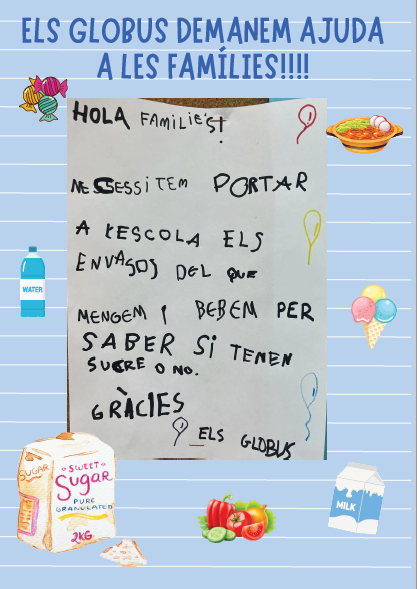 ELS GLOBUS DEMANEM AJUDA
A LES FAMÍLIES!!!!
HOLA FAMILIES!
NECESSITEM PORTAR
A L'ESCOLA ELS
ENVASOS DEL QUE
MENGEM I BEBEM PER
SABER SI TENEN
SUCRE O NO.
GRÀCIES
ELS GLOBUS
WATER
SUGAR
SWEET
Sugar
PURE
GRANULATED
2KG
MILK